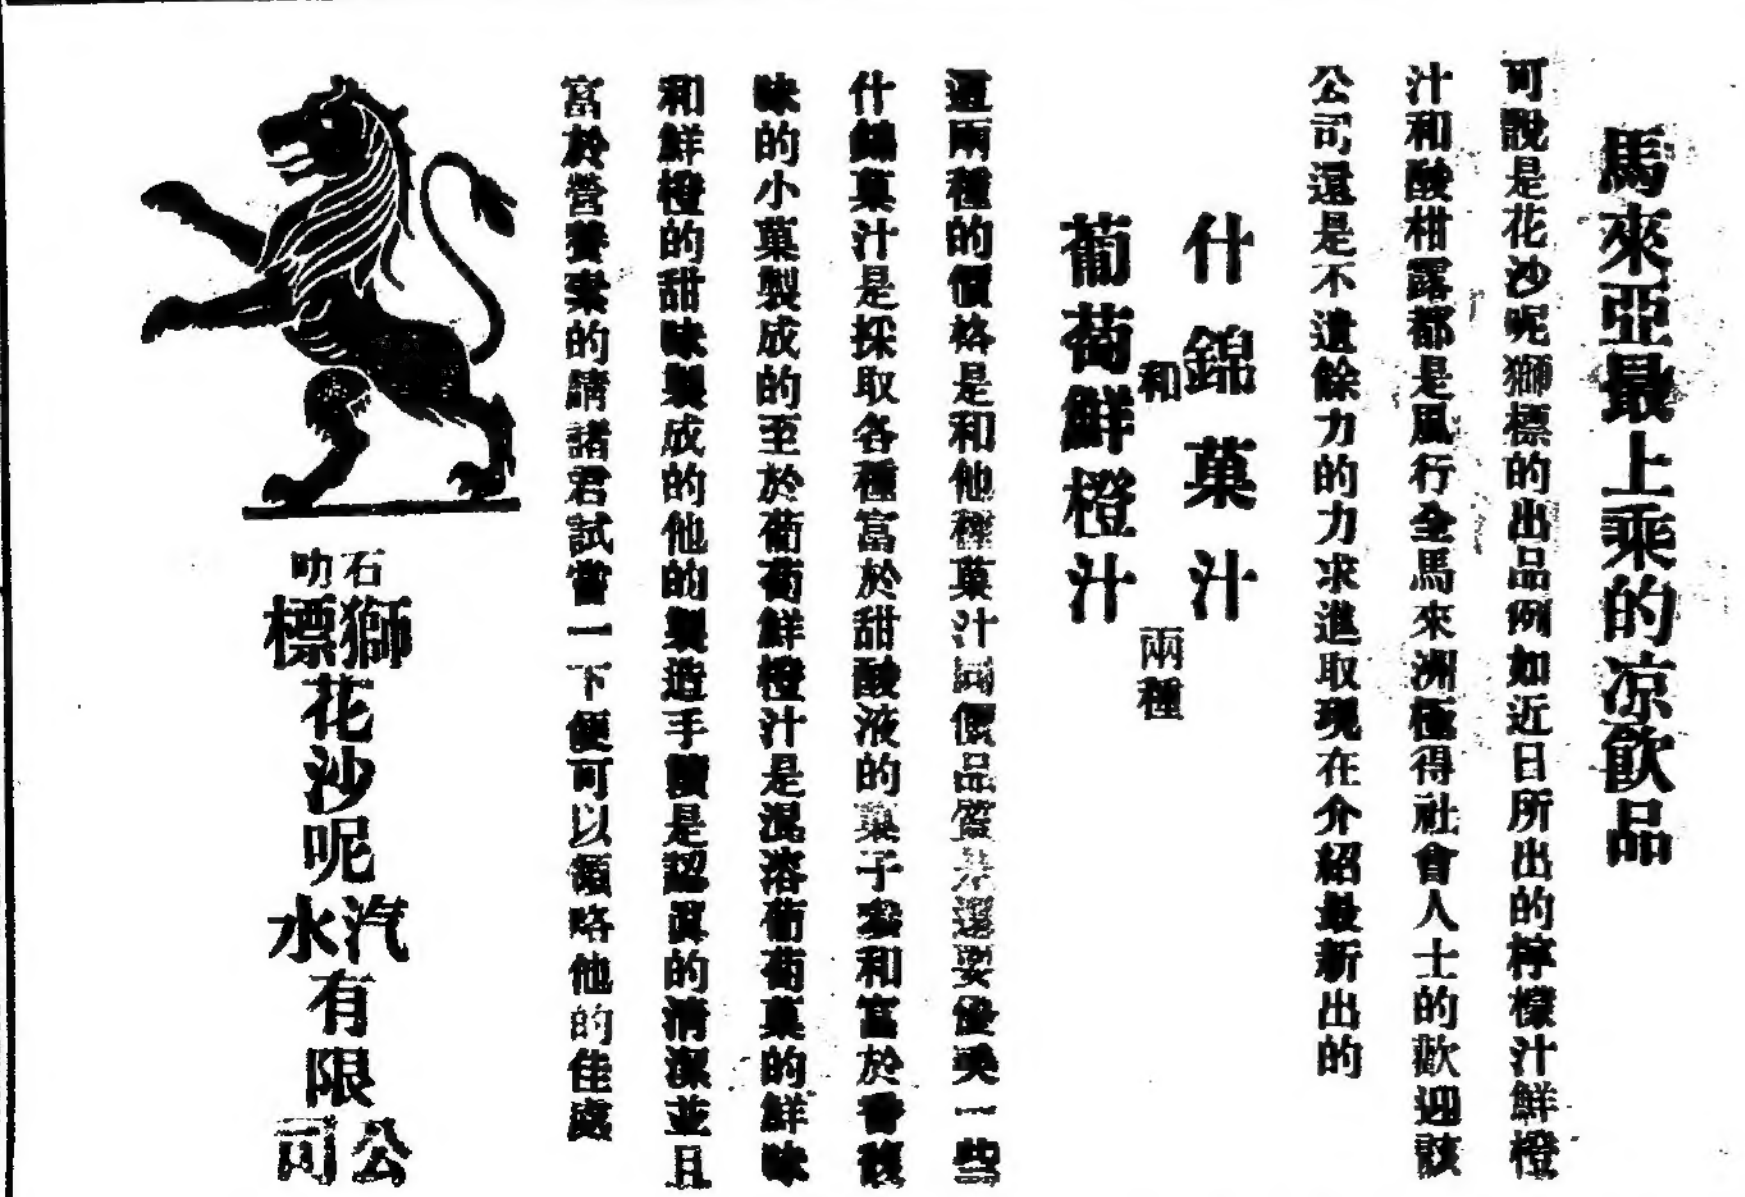 馬來亞最上乘的凉飲品
可說是花沙呢獅標的出品例如近日所出的檸檬汁鮮橙
汁和酸柑露都是風行全馬來洲極得社會人士的歡迎該
公司還是不遺餘力的力求進取現在介紹最新出的
什錦菓汁
和
葡萄鮮橙汁
兩種
這兩種的價格是和他種菓汁同價品質還要優美一些
什錦菓汁是採取各種富於甜酸液的菓子漿和富於香
味的小菓製成的至於葡萄鮮橙汁是混溶葡萄菓的鮮味
和鮮橙的甜味製成的他的製造手續是認眞的清潔並且
富於營養素的請諸君試嘗一下便可以領略他的佳處
石叻
獅標
花沙呢
汽水
有限
公司